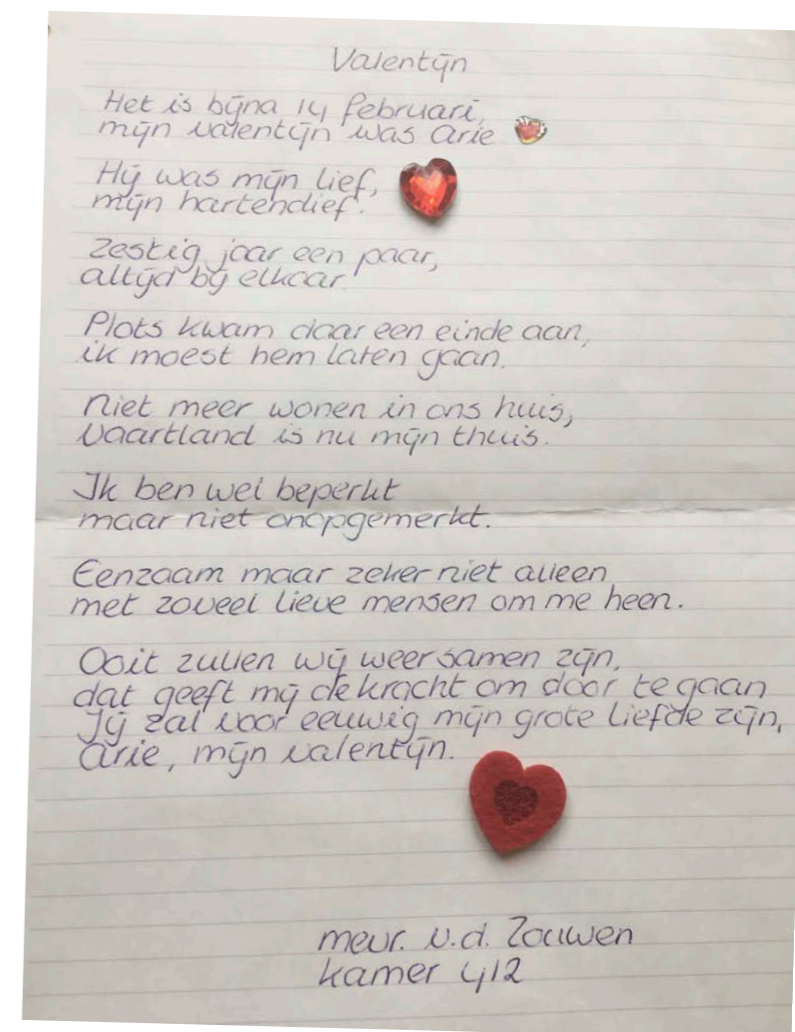 Valentijn
Het is bijna 14 februari,
mijn valentijn was Arie
Hij was mijn lief,
mijn hartendief.
Zestig jaar een paar,
altijd bij elkaar
Plots kwam daar een einde aan,
ik moest hem laten gaan.
Niet meer wonen in ons huis,
Vaartland is nu mijn thuis.
Ik ben wel beperkt
maar niet onopgemerkt.
Eenzaam maar zeker niet alleen,
met zoveel lieve mensen om me heen.
Ooit zullen wij weer samen zijn,
dat geeft mij de kracht om door te gaan
Jij zal voor eeuwig mijn grote liefde zijn,
Arie, mijn valentijn.
mevr. v.d. Zouwen
kamer 412